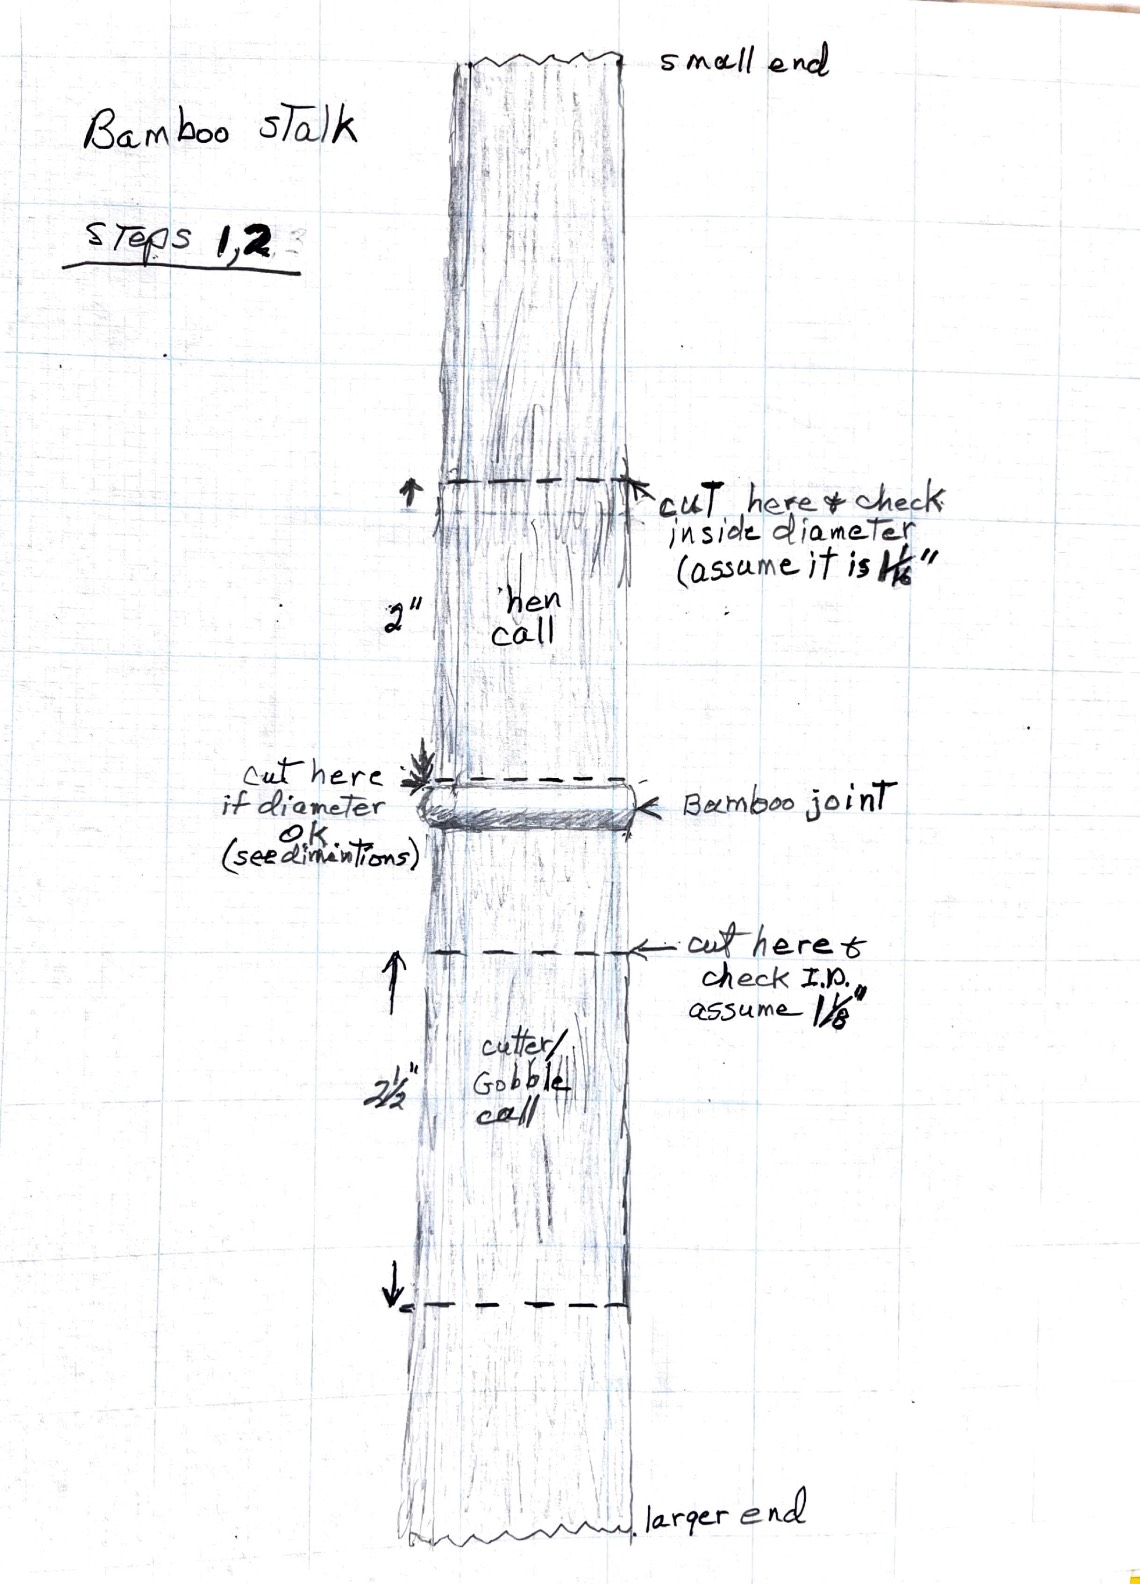 small end
Bamboo stalk
steps 1,2
cut here & check
inside diameter
(assume it is 1 1/16"
2"
hen
call
cut here
if diameter
OK
(see dimintions)
Bamboo joint
cut here &
check I.D.
assume 1 1/8"
cutter/
Gobble
call
2 1/2"
larger end